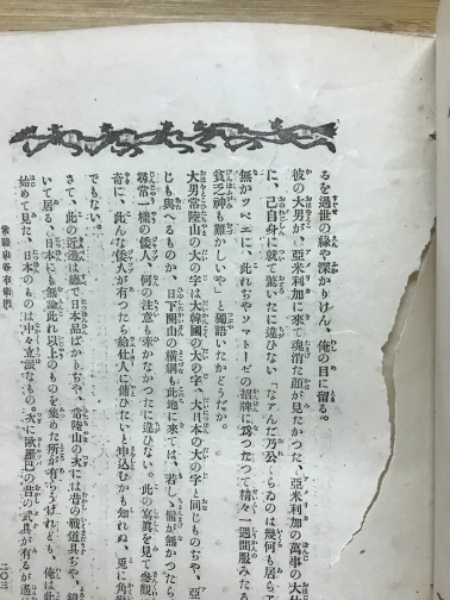 るを過世の緣や深かりけん、俺の目に留る。
彼の大男が、亞米利加に來て魂消た顏が見たかつた、亞米利加の萬事の大
に、己自身に就て驚いたに違ひない「なアんだ乃公くらゐのは幾何も居らア
無かつペエに、此れぢやソマトーゼの招牌に爲つたつて精々一週間服みたる
貧乏神も難かしいや」と獨語いたかどうだか。
大男常陸山の大の字は大韓國の大の字、大日本の大の字と同じものぢや、亞
じも與へるものか、日下開山の橫綱も此地に來ては、若し髷が無かつたら
尋常一樣の倭人、何の注意も牽かなかつたに違ひない。此の寫眞を見て參觀
奇に、此んな倭人が有つたら給仕人に傭ひたいと申込むかも知れぬ、兎に角
でもない。
さて、此の近邊は總て日本品ばかりぢや、常陸山の次には昔の戰道具ぢや、
いて居る、日本にも無論此れ以上のものを集めた所が有らうけれども、俺は此
始めて見た、日本のものは中々立派なもの。次に歐羅巴の昔の武具が有るが遙
常陸山谷右衞門
二〇三